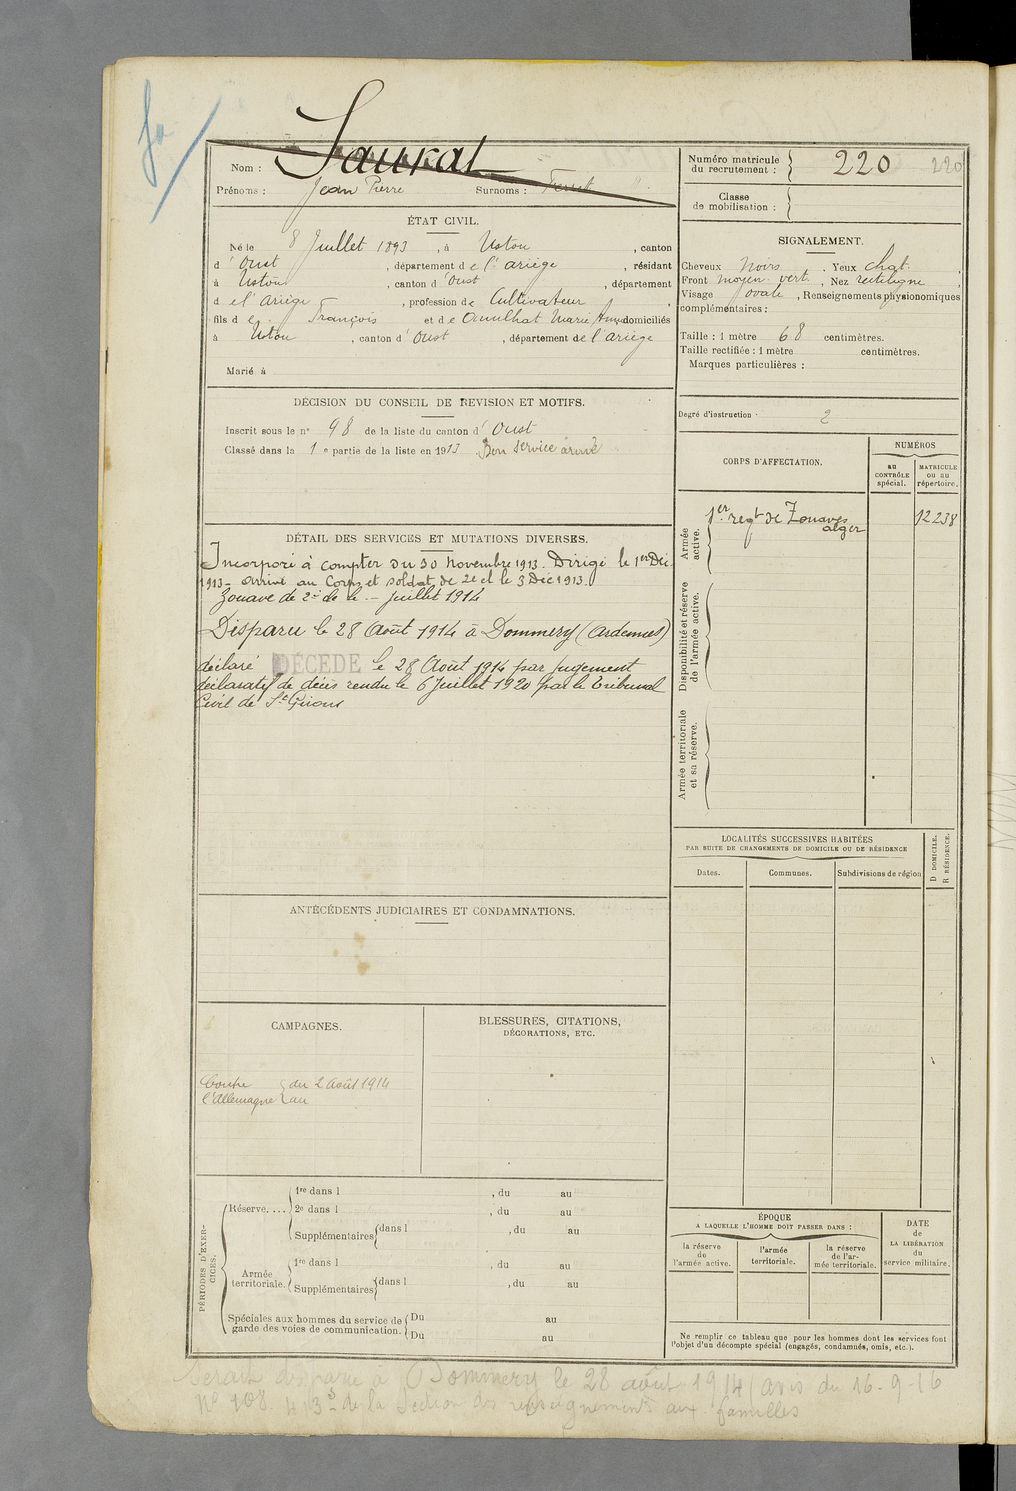 Saurat
Nom :
Prénoms : Jean Pierre Surnoms :
Numéro matricule
du recrutement : 220 220
Classe
de mobilisation :
ÉTAT CIVIL.
Né le 8 Juillet 1893 , à Ustou , canton
d'Oust , département de l'ariège , résidant
à Ustou , canton d'Oust , département
de l'ariège , profession de Cultivateur
fils de François et de Marie domiciliés
à Ustou , canton d'Oust , département de l'ariège
Marié à
SIGNALEMENT.
Cheveux Noirs . Yeux chat. ,
Front moyen vert. , Nez rectiligne ,
Visage ovale , Renseignements physionomiques
complémentaires :
Taille : 1 mètre 68 centimètres.
Taille rectifiée : 1 mètre centimètres.
Marques particulières :
Degré d'instruction : 2
DÉCISION DU CONSEIL DE REVISION ET MOTIFS.
Inscrit sous le n° 98 de la liste du canton d'Oust
Classé dans la 1e partie de la liste en 1913 Bon service armé
CORPS D'AFFECTATION.
NUMÉROS
au
CONTRÔLE
spécial.
MATRICULE
ou au
répertoire.
Armée
active.
1er regt de Zouaves
alger
12238
Disponibilité et réserve
de l'armée active.
Armée territoriale
et sa réserve.
DÉTAIL DES SERVICES ET MUTATIONS DIVERSES.
Incorporé à compter du 30 Novembre 1913. Dirigé le 1er Déc.
1913 - arrivé au Corps et soldat de 2e cl le 3 Déc 1913.
Zouave de 2e cl le - Juillet 1914
Disparu le 28 Août 1914 à Dommery (Ardennes)
déclaré DÉCÉDÉ le 28 Août 1914 par jugement
déclaratif de décès rendu le 6 Juillet 1920 par le Tribunal
Civil de St Girons
LOCALITÉS SUCCESSIVES HABITÉES
PAR SUITE DE CHANGEMENTS DE DOMICILE OU DE RÉSIDENCE
D DOMICILE.
R RÉSIDENCE.
Dates.
Communes.
Subdivisions de région
ANTÉCÉDENTS JUDICIAIRES ET CONDAMNATIONS.
CAMPAGNES.
Contre du 2 Août 1914
l'Allemagne au
BLESSURES, CITATIONS,
DÉCORATIONS, ETC.
PÉRIODES D'EXER-
CICES.
Réserve....
1re dans l , du au
2e dans l , du au
Supplémentaires dans l , du au
Armée
territoriale.
1re dans l , du au
Supplémentaires dans l , du au
Spéciales aux hommes du service de
garde des voies de communication.
Du au
Du au
ÉPOQUE
A LAQUELLE L'HOMME DOIT PASSER DANS :
la réserve
de
l'armée active.
l'armée
territoriale.
la réserve
de l'ar-
mée territoriale.
DATE
de
LA LIBÉRATION
du
service militaire.
Ne remplir ce tableau que pour les hommes dont les services font
l'objet d'un décompte spécial (engagés, condamnés, omis, etc.).
Serait disparu à Dommery le 28 août 1914 (avis du 16-9-16
N° 108. 413 de la Section des renseignements aux familles